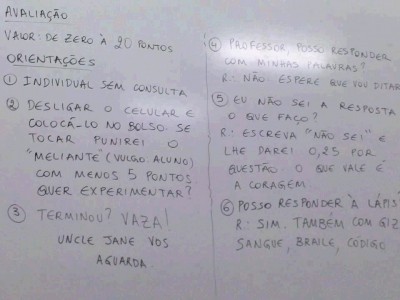 AVALIAÇÃO
VALOR: DE ZERO À 20 PONTOS
ORIENTAÇÕES
① INDIVIDUAL SEM CONSULTA
② DESLIGAR O CELULAR E
COLOCÁ-LO NO BOLSO. SE
TOCAR PUNIREI O
"MELIANTE" (VULGO: ALUNO)
COM MENOS 5 PONTOS
QUER EXPERIMENTAR?
③ TERMINOU? VAZA!
UNCLE JANE VOS
AGUARDA
④ PROFESSOR, POSSO RESPONDER
COM MINHAS PALAVRAS?
R.: NÃO. ESPERE QUE VOU DITAR
⑤ EU NÃO SEI A RESPOSTA
O QUE FAÇO?
R.: ESCREVA "NÃO SEI" E
LHE DAREI 0,25 POR
QUESTÃO. O QUE VALE É
A CORAGEM
⑥ POSSO RESPONDER À LÁPIS
R: SIM. TAMBÉM COM GIZ
SANGUE, BRAILE, CÓDIGO